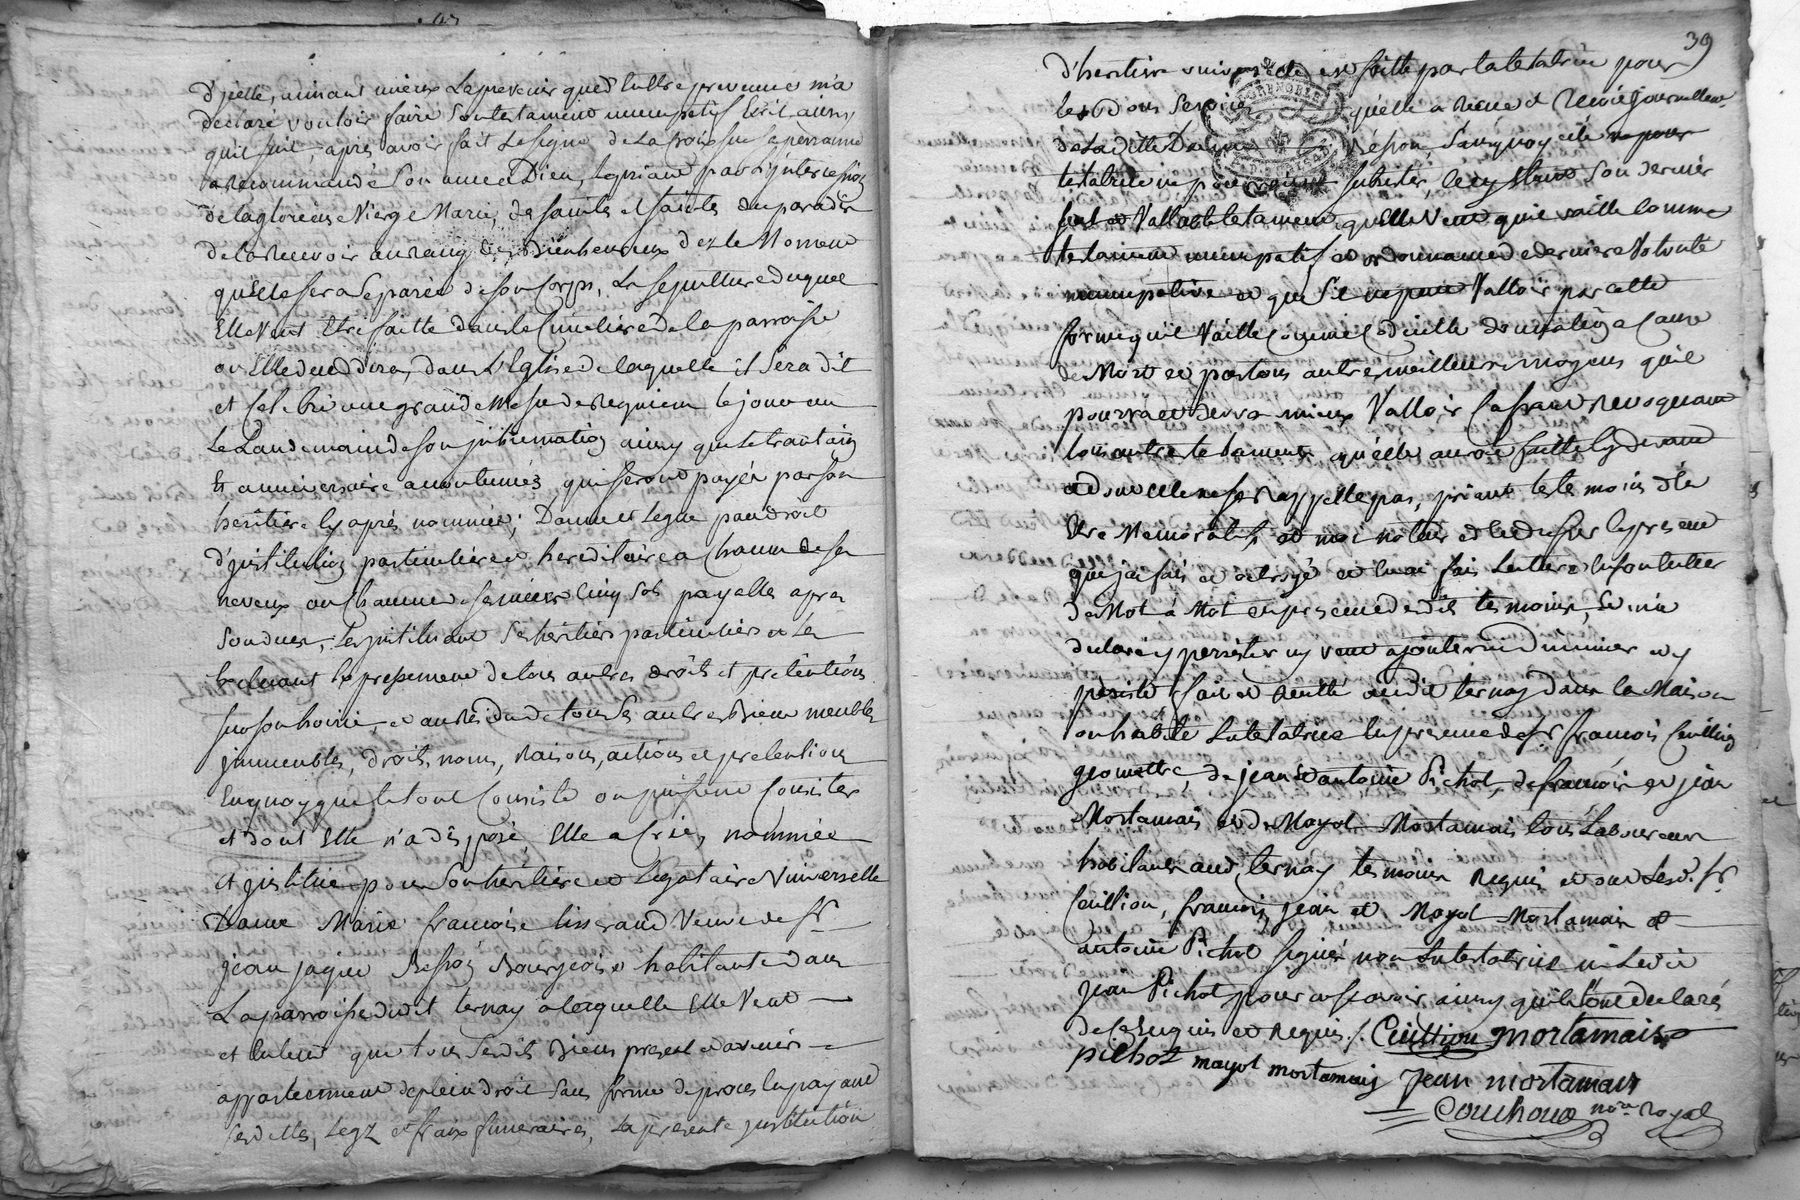 d'jcelle, aimant mieux la prevenir que d'Estre prevenue m'a
declaré vouloir faire son testament nuncupatif Ecrit ainsy
quil suit, apres avoir fait le signe de la Croix sur sa personne
a recommandé son ame a Dieu, le priant par l'jntercession
de la glorieuse Vierge Marie, des saints et saintes du paradis
de la recevoir au rang des Bienheureux dez le Moment
qu'Elle sera separée de son Corps, la sepulture duquel
Elle Veut Etre faitte dans le Cimetiere de la parroisse
ou Elle decedera, dans l'Eglise de laquelle il sera dit
et Celebré une grande Messe de Requiem le jour ou
Le Landemain de son jnhumation ainsy que le trantain
Et anniversaire accoutumés, qui seront payés par son
heritiere cy après nommée; Donne et Legue par droit
d'jnstitution particuliere et hereditaire a Chacun de ses
neveux ou Chacune ses nieces Cinq sols payables apres
son deces, les jnstituant ses heritiers particuliers et les
Excluant Expressement de tous autres droits et pretentions
sur son hoirie, et au Residu de tous ses autres Biens meubles
jmmeubles, droits, noms, raisons, actions et pretentions
En quoy que le tout Consiste ou puissent Consister
et dont Elle n'a disposé, Elle a Créé, nommée
et jnstituée pour son heritiere et Legataire Universelle
Dame Marie françoise tisserand Veuve de Sr
jean jaque Besson Bourgeoise habitante dans
La parroisse dudit ternay a laquelle Elle Veut
et Entend que tous sesdits Biens present et avenir
appartiennent de plein droit sans forme de proces En payant
ses dettes, Legz et fraix funeraires, La presente jnstitution
39
d'heritiere universelle est faitte par la testatrice pour
les bons services quelle a Recue et Recoit journellem.t
de Ladite Dame Besson
testatrice dernier
et Vallable testament quelle Veut quil vaille Comme
testament nuncupatif et ordonnance de derniere Volonté
nuncupative et que S'il ne peut Valloir par cette
forme quil Vaille Comme Codicille donnation a Cause
de Mort et par tous autres meilleurs moyens quil
pourra et devra mieux Valloir Cassant Revoquant
tous autres testaments quelle auroit faitte Cy devant
et dont Elle ne se Rappelle pas, priant les temoins d'En
Etre Memoratifs et moi notaire
que jai fais et octroyé et lui ai fais Lecture
de Mot à Mot En presence desdits temoins,
declaré y persister ny vouloir ajouter ni diminuer et y
persiste, fait et Recitté audit ternay dans la Maison
ou habite La testatrice En presence de Sr francois Cuillion
geometre, de jean et antoine Pichot, de francois et jean
Mortamais et de Mayol Mortamais tous Laboureurs
habitans aud. ternay temoins Requis et ont Lesd. Sr
Cuillion, francois, jean et Mayol Mortamais et
antoine Pichot signés non La testatrice ni Ledit
jean Pichot pour ne scavoir ainsy quils l'ont declarés
de ce Enquis et Requis /. Cuillion mortamais
pichot mayol mortamais jean mortamais
Couchoud no.re Royal
GRENOBLE